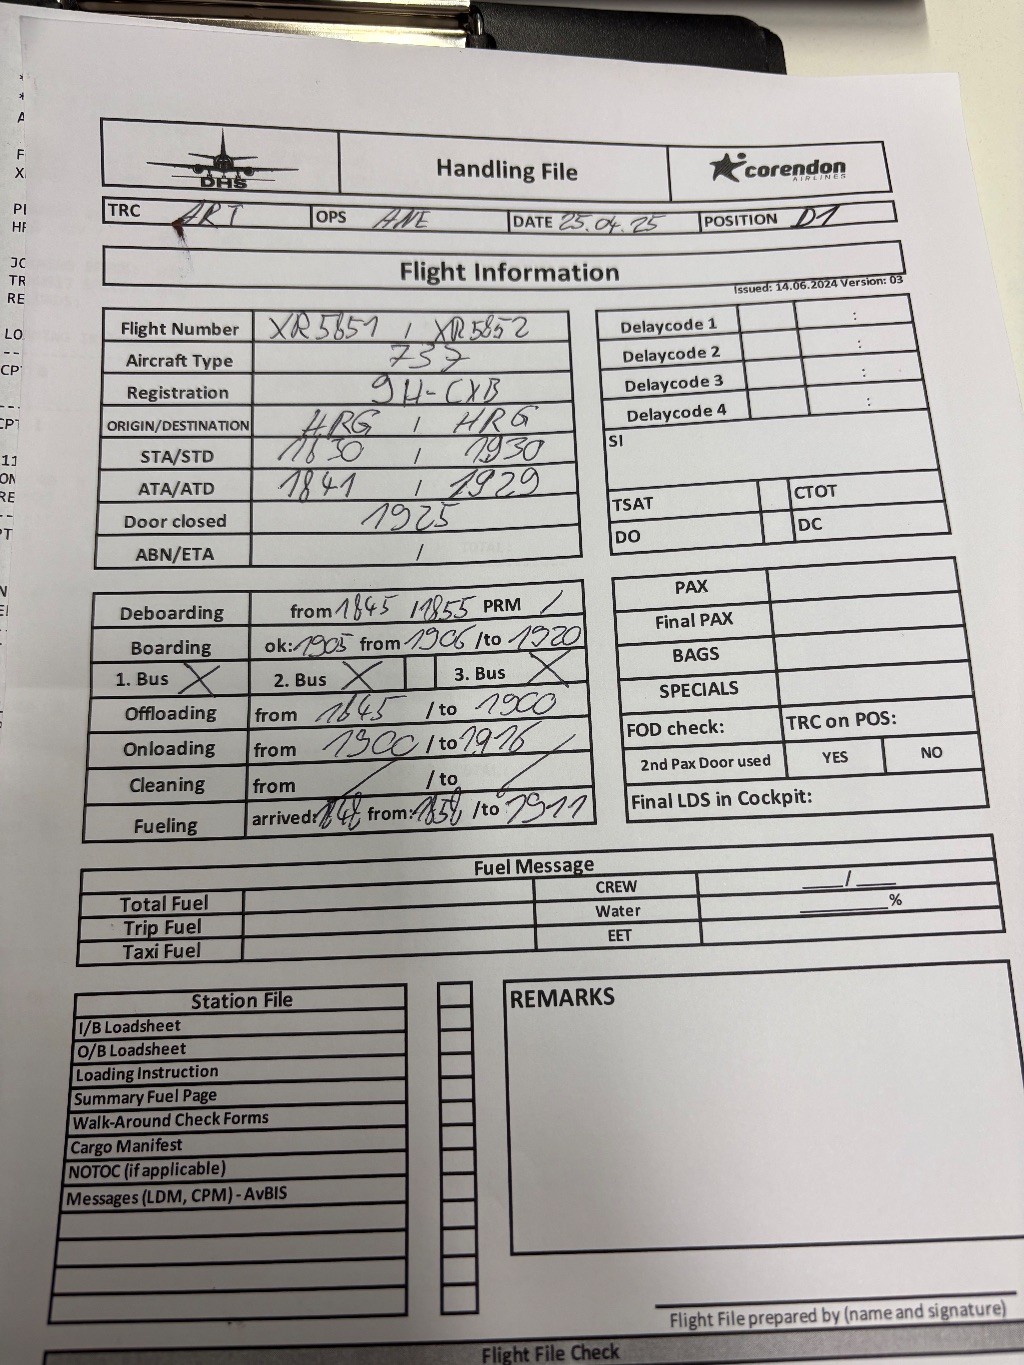 DHS
Handling File
corendon
AIRLINES
TRC ART OPS ANE DATE 25.04.25 POSITION D1
Flight Information
Issued: 14.06.2024 Version: 03
Flight Number XR5851 / XR5852
Aircraft Type 737
Registration 9H-CXB
ORIGIN/DESTINATION HRG / HRG
STA/STD 1830 / 1930
ATA/ATD 1841 / 1929
Door closed 1925
ABN/ETA /
Delaycode 1 :
Delaycode 2 :
Delaycode 3 :
Delaycode 4 :
SI
TSAT CTOT
DO DC
Deboarding from 1845 / 1855 PRM /
Boarding ok: 1905 from 1906 /to 1920
1. Bus X 2. Bus X 3. Bus X
Offloading from 1845 / to 1900
Onloading from 1900 / to 1916
Cleaning from / / to /
Fueling arrived: 1848 from: 1858 /to 1911
PAX
Final PAX
BAGS
SPECIALS
FOD check: TRC on POS:
2nd Pax Door used YES NO
Final LDS in Cockpit:
Fuel Message
Total Fuel CREW ___/___
Trip Fuel Water ______%
Taxi Fuel EET
Station File
I/B Loadsheet
O/B Loadsheet
Loading Instruction
Summary Fuel Page
Walk-Around Check Forms
Cargo Manifest
NOTOC (if applicable)
Messages (LDM, CPM) - AvBIS
REMARKS
Flight File prepared by (name and signature)
Flight File Check